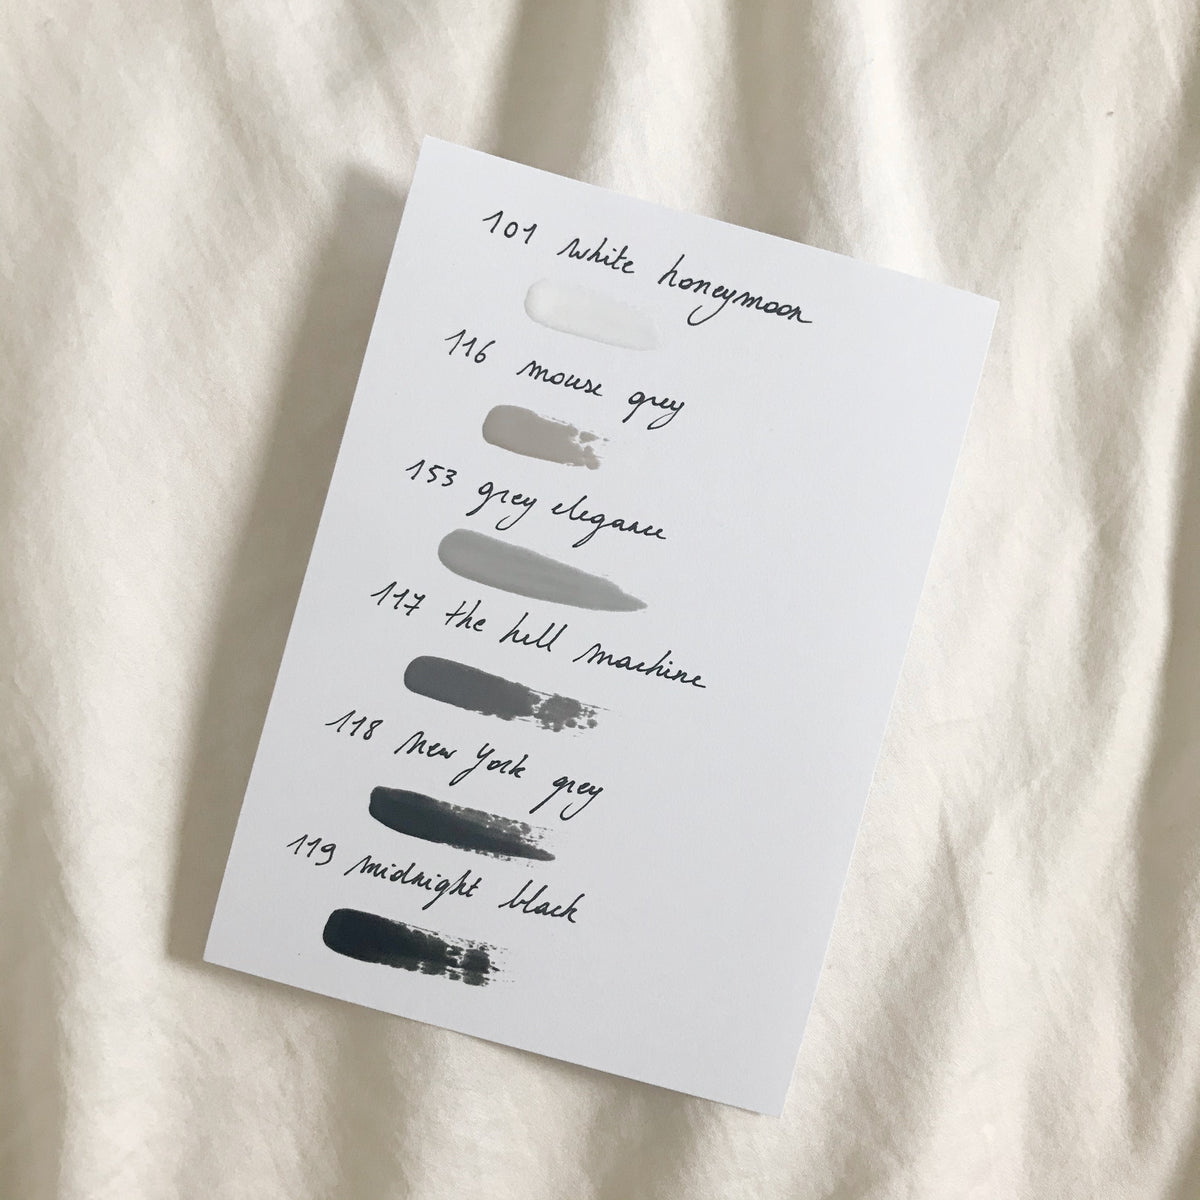 101 white honeymoon
116 mouse grey
153 grey elegance
117 the hell machine
118 New York grey
119 midnight black